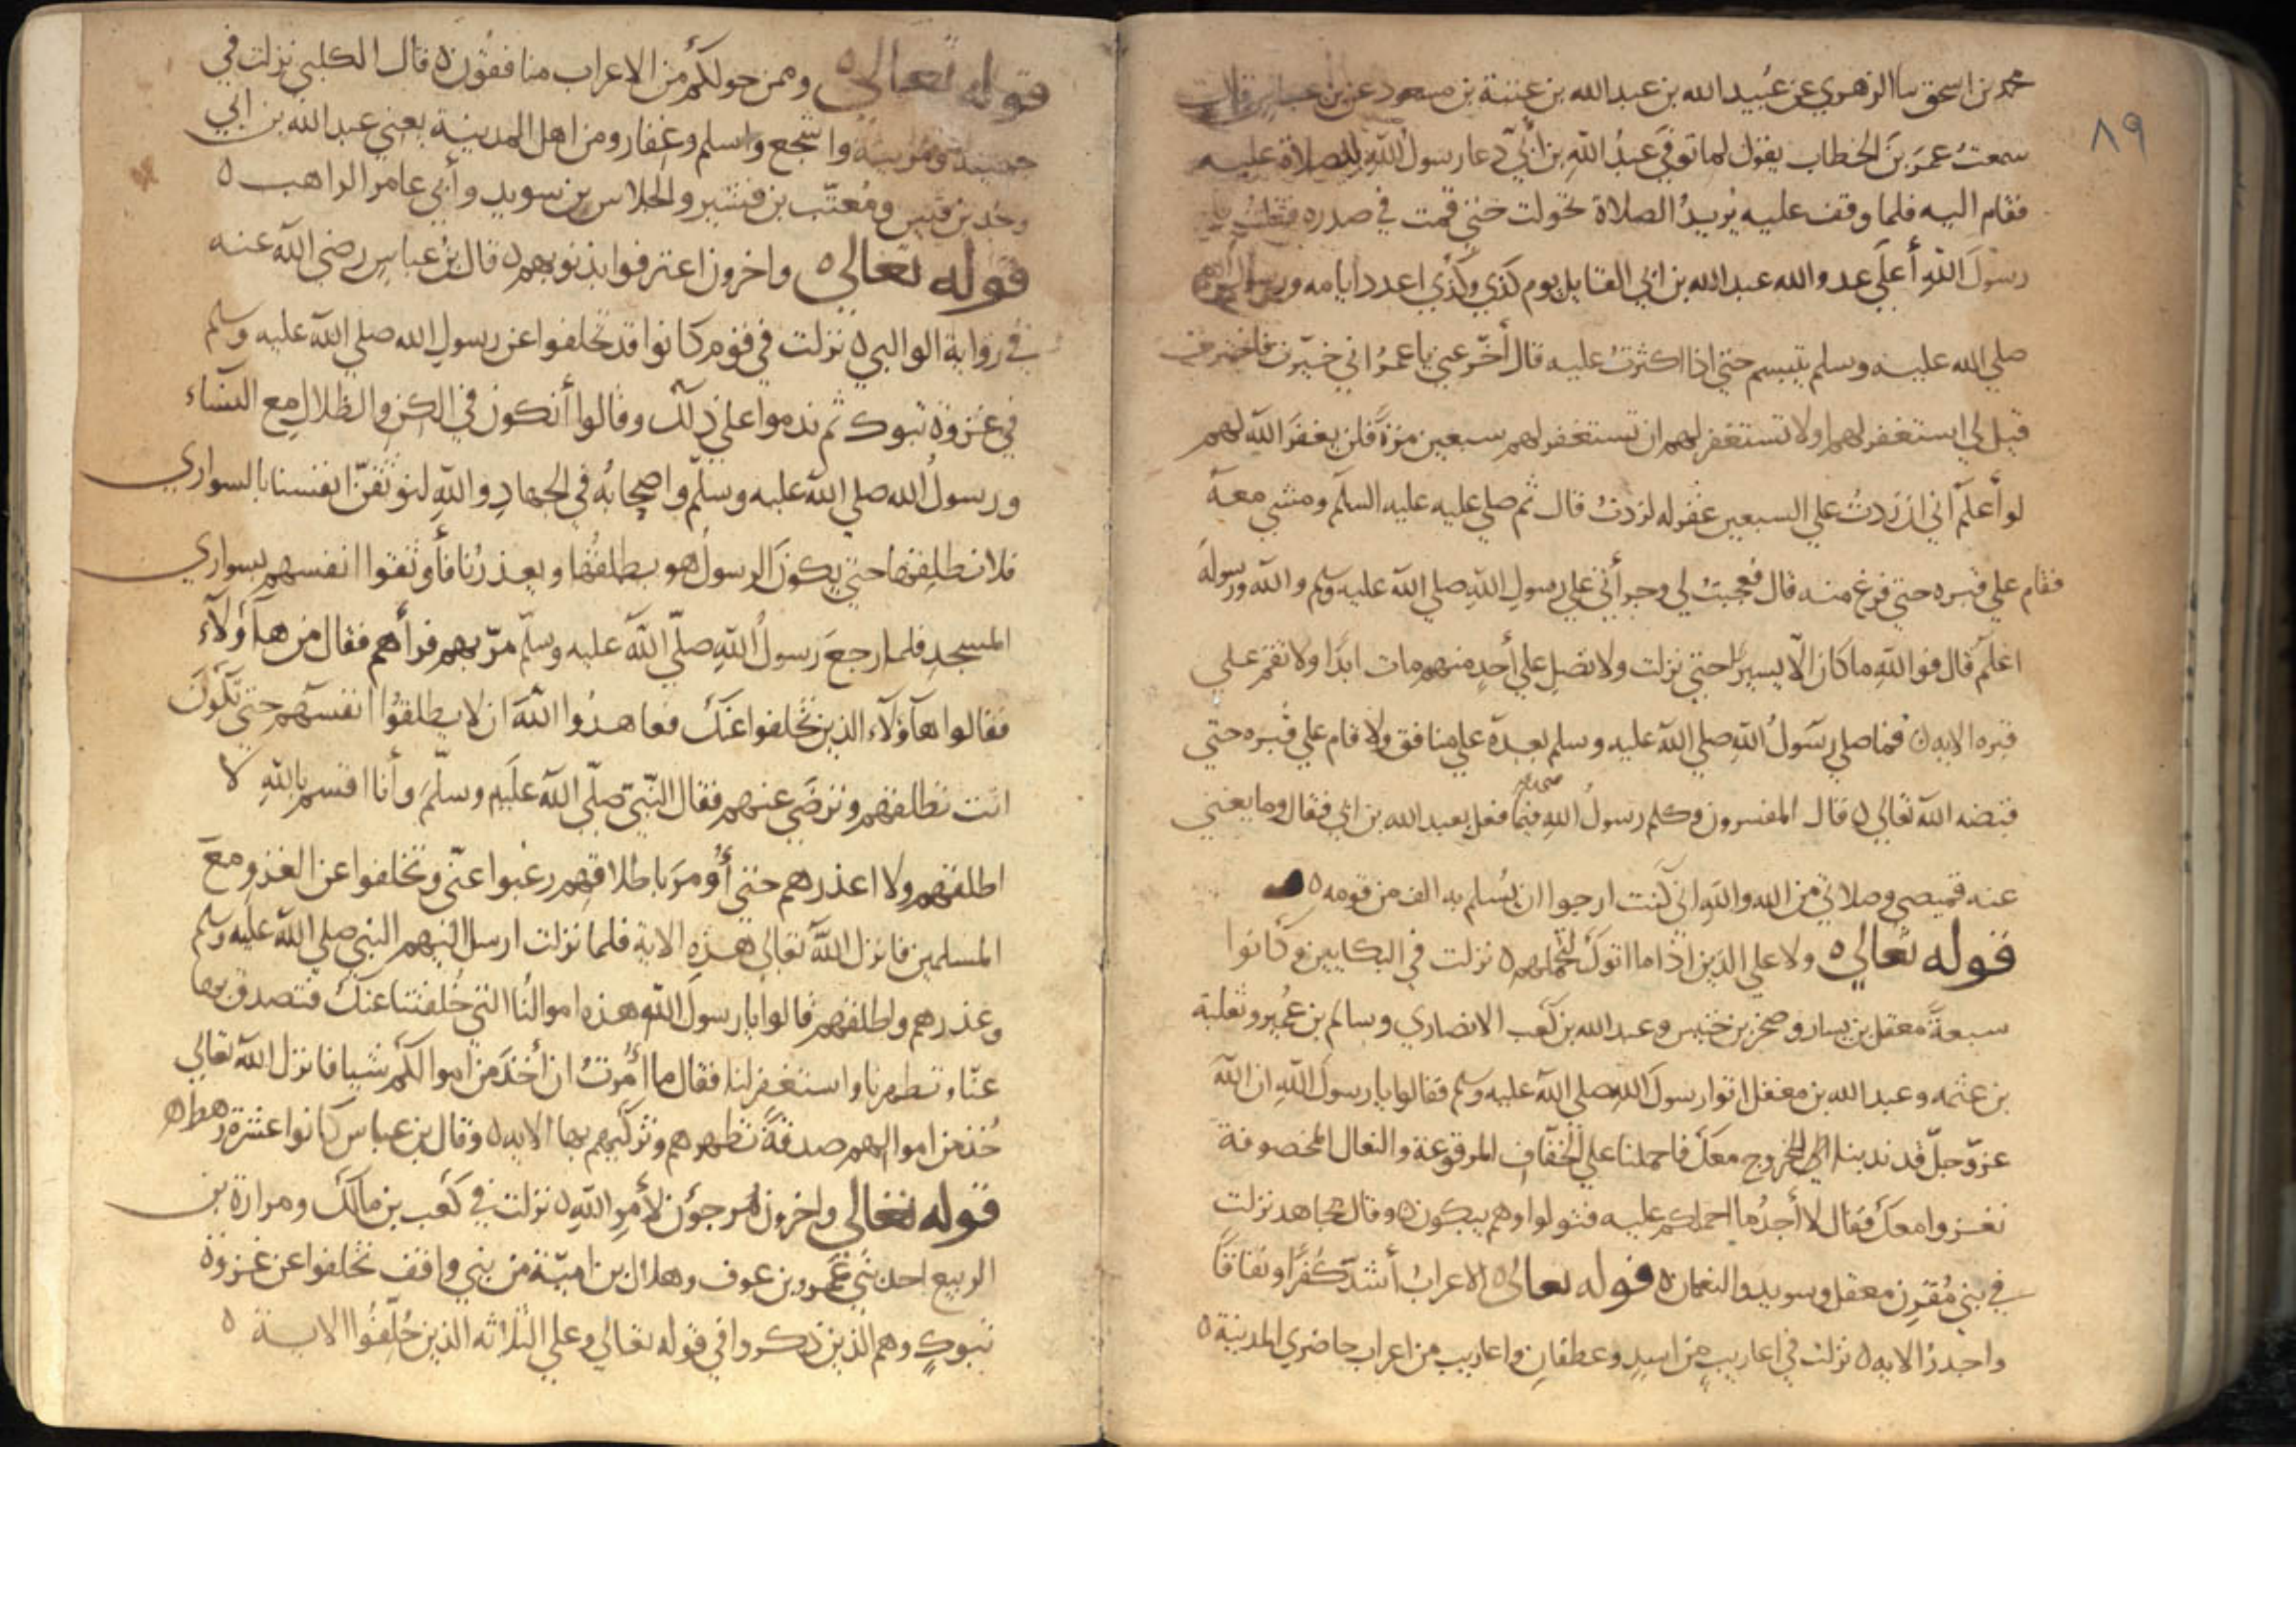 ٨٩
محمد بن اسحق سا الزهري عن عبيد الله بن عبد الله بن عتبة بن مسعود عن بن عباس قال
سمعتُ عمرَ بنَ الخطاب يقول لما توفيَ عبدُ اللهِ بن أُبيّ دعا رسولُ اللهِ للصلاة عليه
فقام اليه فلما وقف عليه يريدُ الصلاة تحولت حتى قمت في صدره فقلتُ يا
رسولَ اللهِ أعلَي عدو الله عبد الله بن ابي القايل يوم كذي وكذي اعدد ايامه ورسول الله
صلي الله عليه وسلم يتبسم حتي اذا اكثرتُ عليه قال أخّر عني يا عمرُ اني خيّرت فاخترت
قيل لي استغفر لهم اولا تستغفر لهم ان تستغفر لهم سبعين مرةً فلن يغفرَ اللهُ لهم
لو أعلمُ اني ان زدتُ علي السبعين غفر له لزدتُ قال ثم صلي عليه عليه السلم ومشي معهُ
فقام علي قبره حتي فرغ منه قال فعجبتُ لي وجرأتي علي رسولِ اللهِ صلي الله عليه وسلم والله ورسولهُ
اعلم قال فوالله ما كان الّا يسيرًا حتي نزلت ولا تصلِ علي أحدٍ منهم مات ابدًا ولا تقم علي
قبره الايه ٥ فما صلي رسَولُ اللهِ صلي الله عليه وسلم بعدهُ علي منافق ولا قام علي قبره حتي
قبضه الله تعالي ٥ قال المفسرون وكلم رسولُ اللهِ فيما فعل بعبد الله بن ابي فقال وما يغني
عنه قميصي وصلاتي من الله والله اني كنت ارجوا ان يُسلم به الف من قومه ٥
قوله تعالي ٥ ولا علي الذين اذا ما اتوكَ لتحملهم ٥ نزلت في البكايين وكانوا
سبعةً معقل بن يسار وصخر بن خنيس وعبد الله بن كعب الانصاري وسالم بن عُمير وثعلبة
بن عنمه وعبد الله بن مغفل اتوا رسولَ اللهِ صلي الله عليه وسلم فقالوا يا رسولَ اللهِ ان اللهَ
عزّ وجلّ قد ندبنا الي الخروج معكَ فاحملنا علي الخفاف المرقوعة والنعال المخصوفة
نغزوا معكَ فقال لا أجدُ ما احملكم عليه فتولوا وهم يبكون ٥ وقال مجاهد نزلت
في بني مُقرن معقل وسويد والنعمان ٥ قوله تعالي ٥ الاعرابُ أشدّ كُفرًا ونفاقًا
واجدرُ الايه ٥ نزلت في اعاريبٍ من اسدٍ وغطفانِ واعاريب من اعراب حاضري المدينة ٥
قوله تعالي ٥ وممن حولكم من الاعراب منافقون ٥ قال الكلبي نزلت في
جهينة ومزينة واشجع واسلم وغفار ومن اهل المدينة يعني عبد الله بن ابي
وجد بن قيس ومُعتّب بن قشير والجلاس بن سويد وأبي عامر الراهب ٥
قوله تعالي ٥ واخرون اعترفوا بذنوبهم ٥ قال بنُ عباسٍ رضي الله عنه
في رواية الوالبي ٥ نزلت في قومٍ كانوا قد تخلفوا عن رسولِ الله صلي الله عليه وسلم
في غزوة تبوك ثم ندموا علي ذلك وقالوا أنكون في الكن والظلالِ مع النساء
ورسولُ الله صلي الله عليه وسلّم واصحابهُ في الجهادِ واللهِ لنوثقنّ انفسنا بالسواري
فلا نطلقها حتي يكونَ الرسولُ هو يطلقُها ويعذرُنا فأوثقوا انفسهم بسواري
المسجدِ فلما رجعَ رَسولُ اللهِ صلّي اللهُ عليه وسلّم مرّ بهم فرأهم فقال من هآؤلآء
فقالوا هآؤلآء الذين تخلفوا عنكَ فعاهدُوا اللهَ ان لا يطلقُوا انفسهم حتي تكونَ
انت تطلقهم وترضَي عنهم فقال النّبيّ صلّي اللهُ علَيهِ وسلّمَ وأنا اقسم باللهِ لا
اطلقهم ولا اعذرهم حتى أُومرَ باطلاقهم رغبوا عنّي وتخلفوا عن الغزو معَ
المسلمين فانزل اللهُ تعالي هذهِ الاية فلما نزلت ارسل اليهم النبي صلي الله عليه وسلم
وعذرهم واطلقهم قالوا يا رسولَ اللهِ هذه اموالُنا التي خُلفتنا عنكَ فتصدق بها
عنّا وتطهرنا واستغفر لنا فقال ما أُمرتُ ان أخذَ من اموالكم شيا فانزل الله تعالي
خُذ من اموالهم صدقةً تطهرهم وتزكيهم بها الايه ٥ وقال بن عباس كانوا عشرة رهط ٥
قوله تعالي واخرون مُرجؤن لأمر الله ٥ نزلت في كعب بن مالكَ ومرارة بن
الربيع احد بني عَمرو بن عوف وهلال بن اميّة من بني واقف تخلفوا عن غزوة
تبوكٍ وهم الذين ذكروا في قوله تعالي وعلي الثلاثه الذين خُلّفُوا الاية ٥